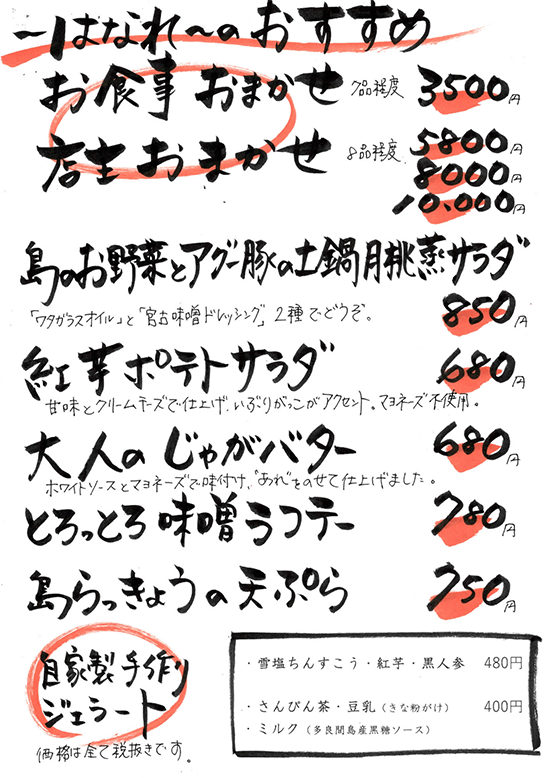 〜はなれ〜のおすすめ
お食事おまかせ 7品程度 3500円
店主おまかせ 8品程度 5800円
8000円
10.000円
島のお野菜とアグー豚の土鍋月桃蒸サラダ
850円
「ワタガラスオイル」と「宮古味噌ドレッシング」2種でどうぞ。
紅芋ポテトサラダ 680円
甘味とクリームチーズで仕上げ、いぶりがっこがアクセント。マヨネーズ不使用。
大人のじゃがバター 680円
ホワイトソースとマヨネーズで味付け、"あれ"をのせて仕上げました。
とろっとろ味噌ラフテー 780円
島らっきょうの天ぷら 750円
自家製手作り
ジェラート
価格は全て税抜きです。
・雪塩ちんすこう・紅芋・黒人参 480円
・さんぴん茶・豆乳（きな粉がけ） 400円
・ミルク（多良間島産黒糖ソース）